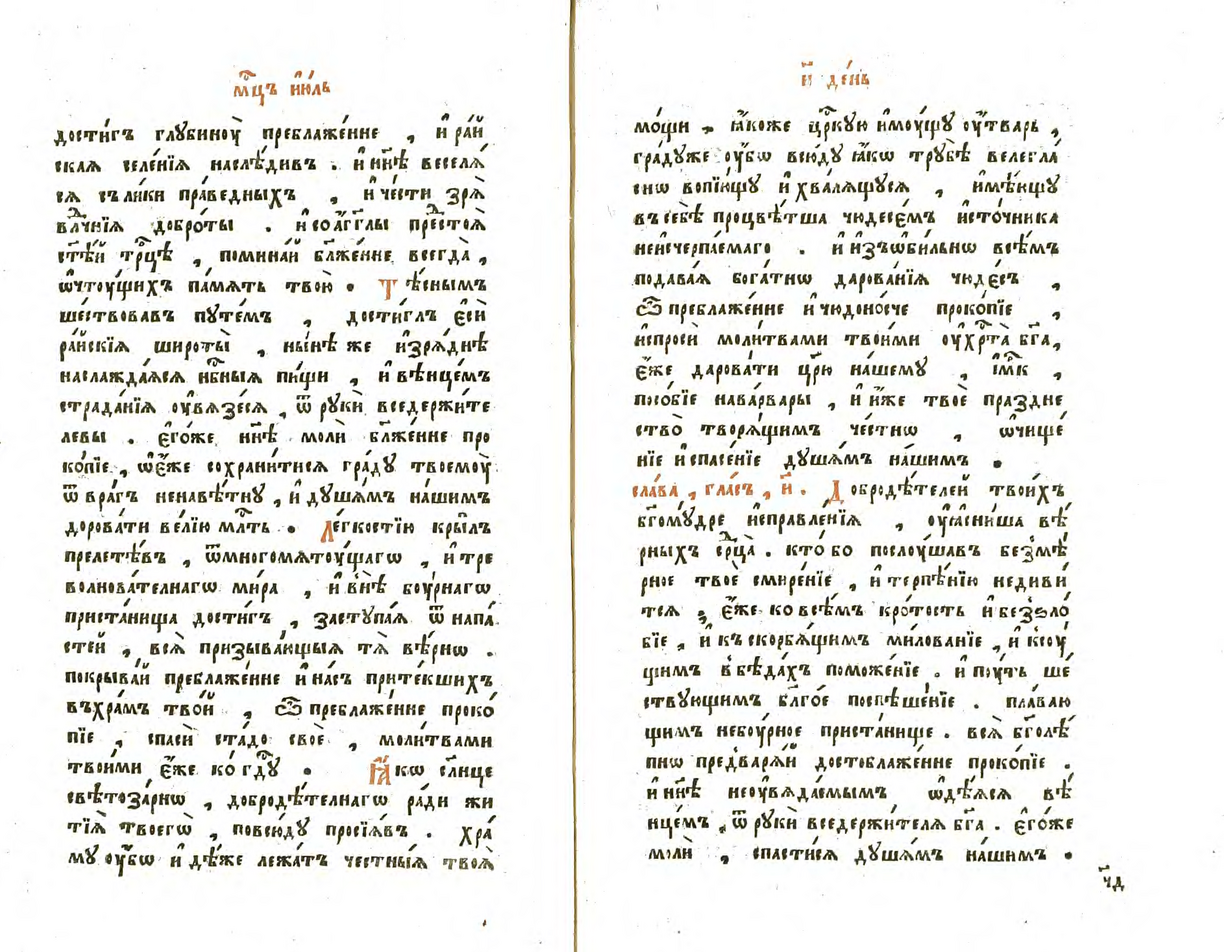 мц҃ъ и҆ю́ль
дости́гъ глꙋбинꙋ̀ преблаже́нне , и҆ ра́й
ская селе́нїѧ наслѣ́дивъ . и҆ нн҃ѣ весел́ѧ
сѧ съ ли́ки пра́ведныхъ , и҆ че́сти зрѧ̀
влⷣчнїѧ добро́ты . и҆ со а҆́гг҃лы пресⷣтоѧ̀
ст҃ѣ́й трⷪ҇цѣ , помина́й бл҃же́нне всегда̀ ,
ѡ҆ чтоу́щихъ па́мѧть твою̀ . Тѣ́снымъ
ше́ствовавъ пꙋте́мъ , дости́глъ є҆сѝ
ра́йскїѧ широты̀ , ны́нѣ же и҆зрѧ́днѣ
наслажда́ѧсѧ нбⷭ҇ныѧ пи́щи , и҆ вѣнце́мъ
страда́нїѧ оу҆вѧзе́сѧ , ѿ рꙋкѝ вседержи́те
левы . є҆го́же нн҃ѣ молѝ бл҃же́нне про
ко́пїе , ѡ҆ є҆́же сохрани́тисѧ гра́дꙋ твоемоу̀
ѿ вра́гъ ненавѣ́тнꙋ , и҆ дꙋша́мъ на́шимъ
дорова́ти ве́лїю млⷭ҇ть . Ле́гкостїю кры́лъ
прелетѣ́въ , ѿ многомѧтоу́щагѡ , и҆ тре
волнова́телнагѡ ми́ра , и҆ в нѣ боу́рнагѡ
приста́нища дости́гъ , застꙋпа́ѧ ѿ напа́
сте́й , всѧ̀ призыва́ющыѧ тѧ̀ вѣ́рнѡ .
покрыва́й преблаже́нне и҆ на́съ прите́кшихъ
въ хра́мъ тво́й , Ѽ преблаже́нне проко́
пїе , спасѝ ста́до своѐ , моли́твами
твои́ми є҆́же ко гдⷭ҇ꙋ . Ꙗ҆́кѡ сл҃нце
свѣтоза́рнѡ , добродѣ́телнагѡ ра́ди жи
тїѧ̀ твоегѡ̀ , повсю́дꙋ просїѧ́въ . хра́
мꙋ оу҆́бѡ и҆ дѣ́же лежа́тъ честны́ѧ твоѧ̀
и҃ де́нь
мо́щи , ꙗ҆́коже црⷦ҇кꙋю и҆моу́щꙋ оу҆́тварь ,
гра́дꙋже оу҆́бѡ всю́дꙋ ꙗ҆́кѡ трꙋбѣ̀ велегла́
снѡ вопїю́щꙋ и҆ хвалѧ́щꙋсѧ , и҆мѣ́ющꙋ
въ себѣ̀ процвѣ́тша чюдесе́мъ и҆сто́чника
неи҆счерпа́емаго . и҆ и҆зъѡби́льнѡ всѣ́мъ
подава́ѧ бога́тнѡ дарова́нїѧ чюде́съ ,
Ѽ преблаже́нне и҆ чюдоно́сче проко́пїе ,
и҆спросѝ моли́твами твои́ми оу҆ хрⷭ҇та̀ бг҃а,
є҆́же дарова́ти цр҃ю на́шемꙋ , і҆м҃к ,
посо́бїе на ва́рвары , и҆ и҆́же твоѐ пра́здне
ство̀ творѧ́щимъ че́стнѡ , ѡ҆чище́
нїе и҆ спасе́нїе дꙋша́мъ на́шимъ .
сла́ва , гла́съ , и҃ . Добродѣ́телей твои́хъ
бг҃омꙋ́дре и҆справле́нїѧ , оу҆ꙗсни́ша вѣ́
рныхъ срⷣца̀ . кто́ бо послоу́шавъ безмѣ́
рное твоѐ смире́нїе , и҆ терпѣ́нїю не диви́
тсѧ , є҆́же ко всѣ́мъ кро́тость и҆ беззло́
бїе , и҆ къ скорбѧ́щимъ ми́лованїе , и҆ ксоу́
щимъ в бѣда́хъ поможе́нїе . и҆ поу́ть ше́
ствꙋющимъ бл҃го́е поспѣше́нїе . пла́ваю
щимъ небоу́рное приста́нище . всѧ̀ бг҃олѣ́
пнѡ предварѧ́й достоблаже́нне проко́пїе .
и҆ нн҃ѣ неоу҆вѧда́емымъ ѡ҆дѣ́ѧсѧ вѣ
нце́мъ , ѿ рꙋкѝ вседержи́телѧ бг҃а . є҆го́же
молѝ , спасти́сѧ дꙋша́мъ на́шимъ .
ч҃д